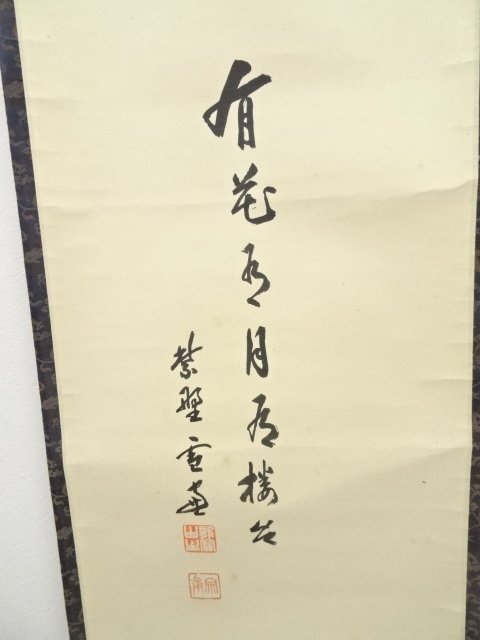 有花有月有楼台
紫野雪庵